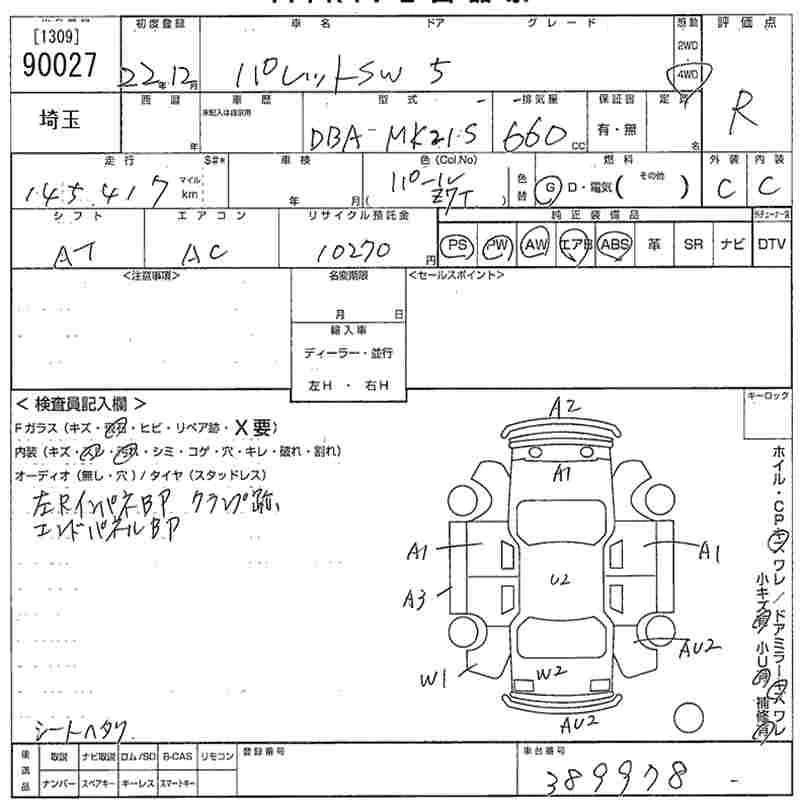 [1309]
90027
埼玉
初度登録
22年12月
車名 ドア グレード
パレットSW 5
駆動
2WD
4WD
評価点
R
西暦
年
車歴
未記入は自家用
型式
DBA-MK21S
排気量
660 CC
保証書
有・無
定員
名
走行
145,417
マイル
km
S#*
車検
年 月
色(Col.No)
パール
Z7T
( )
色替
燃料
G D・電気( その他 )
外装
C
内装
C
シフト
AT
エアコン
AC
リサイクル預託金
10270円
純正装備品
PS PW AW エアB ABS 革 SR ナビ DTV
<注意事項>
名変期限
月 日
輸入車
ディーラー・並行
左H ・ 右H
<セールスポイント>
<検査員記入欄>
Fガラス(キズ・飛石・ヒビ・リペア跡・X要)
内装(キズ・スレ・汚れ・シミ・コゲ・穴・キレ・破れ・割れ)
オーディオ(無し・穴)/タイヤ(スタッドレス)
左RインパネBP クランプ跡
エンドパネルBP
シートヘタリ
キーロック
A2
A1
A1
A1
A3
U2
AU2
W1
W2
AU2
ホイル・CPキズワレ/ドアミラーキズワレ
小キズ有 小U有 補修有
後送品
取説 ナビ取説 ロム/SD B-CAS リモコン
ナンバー スペアキー キーレス スマートキー
登録番号
車台番号
389978